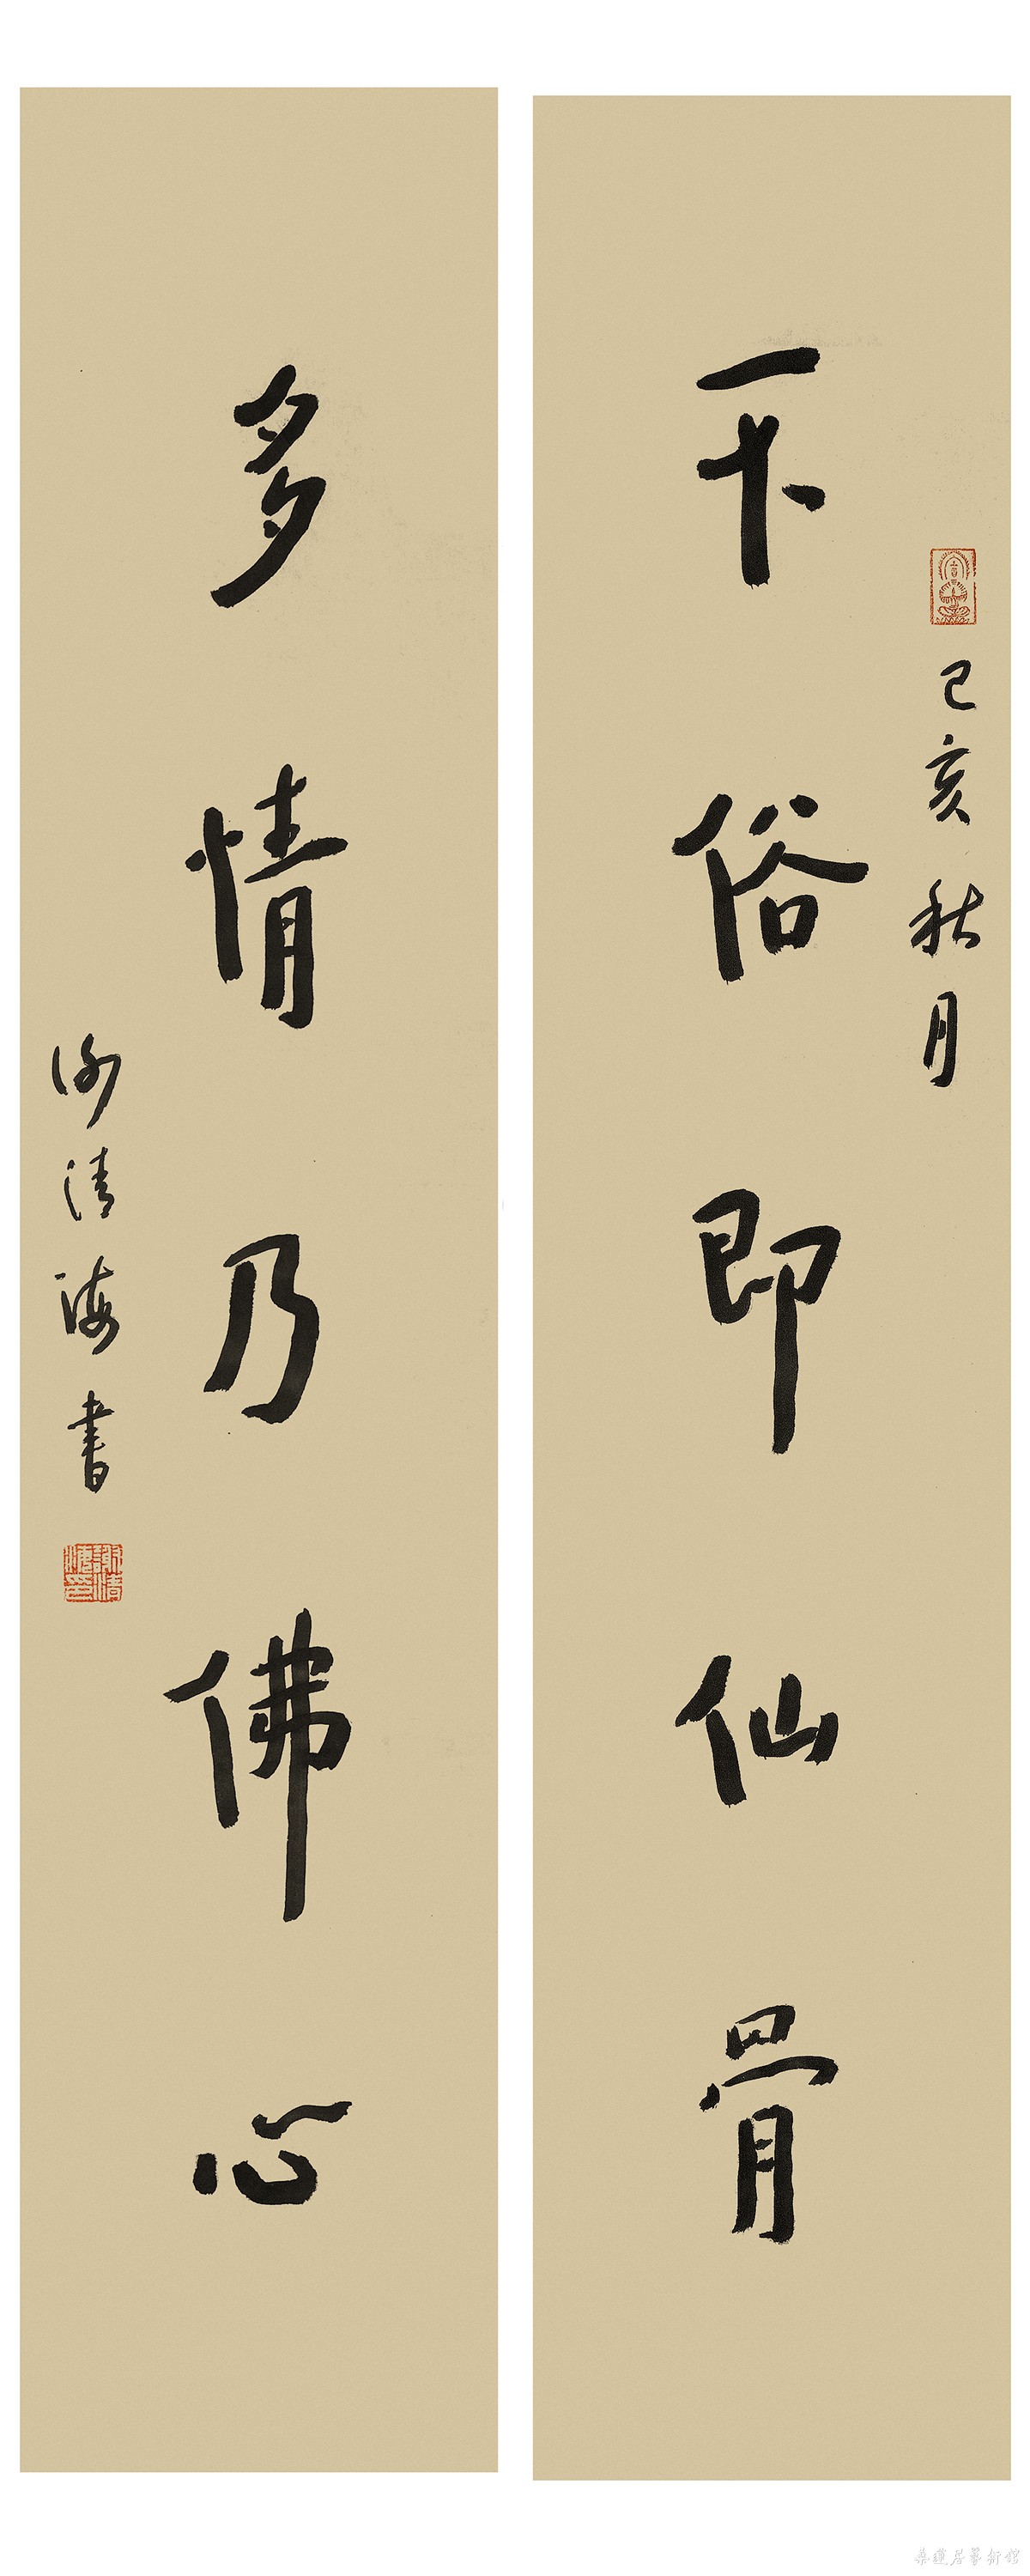 不俗即仙骨
己亥秋月
多情乃佛心
谢清海書